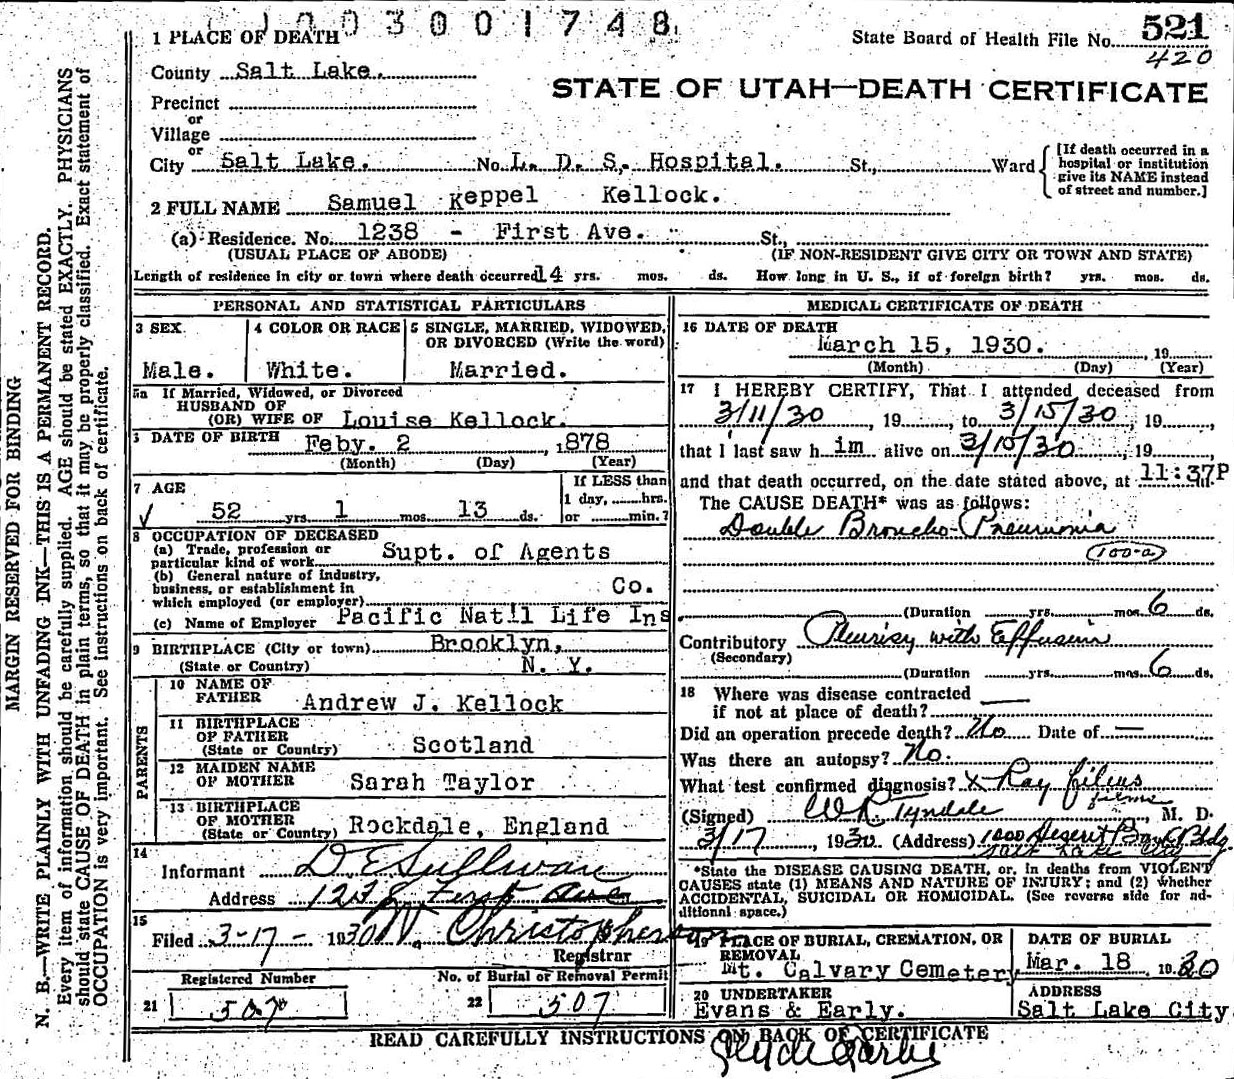 003001748
1 PLACE OF DEATH
State Board of Health File No. 521
420
County Salt Lake.
STATE OF UTAH—DEATH CERTIFICATE
Precinct
or
Village
or
City Salt Lake. No. L. D. S. Hospital. St., Ward
[If death occurred in a hospital or institution give its NAME instead of street and number.]
2 FULL NAME Samuel Keppel Kellock.
(a) Residence. No. 1238 - First Ave. St.,
(USUAL PLACE OF ABODE) (IF NON-RESIDENT GIVE CITY OR TOWN AND STATE)
Length of residence in city or town where death occurred 14 yrs. mos. ds. How long in U. S., if of foreign birth? yrs. mos. ds.
PERSONAL AND STATISTICAL PARTICULARS
3 SEX
Male.
4 COLOR OR RACE
White.
5 SINGLE, MARRIED, WIDOWED, OR DIVORCED (Write the word)
Married.
5a If Married, Widowed, or Divorced
HUSBAND OF
(OR) WIFE OF Louise Kellock.
DATE OF BIRTH Feby. 2, 1878
(Month) (Day) (Year)
7 AGE
52 yrs. 1 mos. 13 ds.
If LESS than
1 day, hrs.
or min.?
8 OCCUPATION OF DECEASED
(a) Trade, profession or
particular kind of work Supt. of Agents
(b) General nature of industry,
business, or establishment in
which employed (or employer) Co.
(c) Name of Employer Pacific Nat'l Life Ins
9 BIRTHPLACE (City or town) Brooklyn,
(State or Country) N. Y.
PARENTS
10 NAME OF
FATHER Andrew J. Kellock
11 BIRTHPLACE
OF FATHER
(State or Country) Scotland
12 MAIDEN NAME
OF MOTHER Sarah Taylor
13 BIRTHPLACE
OF MOTHER
(State or Country) Rockdale, England
14
Informant D. E. Sullivan
Address First Ave
15
Filed 3-17- 1930 Christopherson
Registrar
Registered Number
21 507
No. of Burial or Removal Permit
22 507
MEDICAL CERTIFICATE OF DEATH
16 DATE OF DEATH
March 15, 1930. , 19
(Month) (Day) (Year)
17 I HEREBY CERTIFY, That I attended deceased from
3/11/30, 19 , to 3/15/30, 19 ,
that I last saw h im alive on 3/15/30, 19 ,
and that death occurred, on the date stated above, at 11:37P m.
The CAUSE DEATH* was as follows:
Double Broncho-Pneumonia
(100-a)
(Duration yrs. mos. 6 ds.
Contributory Pleurisy with Effusion
(Secondary)
(Duration yrs. mos. 6 ds.
18 Where was disease contracted
if not at place of death? —
Did an operation precede death? No Date of —
Was there an autopsy? No.
What test confirmed diagnosis? X Ray films
films
(Signed) W R Tyndale, M. D.
3/17, 1930 (Address) 1000 Deseret Bank Bldg.
Salt Lake City
*State the DISEASE CAUSING DEATH, or, in deaths from VIOLENT
CAUSES state (1) MEANS AND NATURE OF INJURY; and (2) whether
ACCIDENTAL, SUICIDAL OR HOMICIDAL. (See reverse side for ad-
ditional space.)
19 PLACE OF BURIAL, CREMATION, OR
REMOVAL
Mt. Calvary Cemetery,
DATE OF BURIAL
Mar. 18 1930
20 UNDERTAKER
Evans & Early.
ADDRESS
Salt Lake City
READ CAREFULLY INSTRUCTIONS ON BACK OF CERTIFICATE
MARGIN RESERVED FOR BINDING
N. B.—WRITE PLAINLY WITH UNFADING INK—THIS IS A PERMANENT RECORD.
Every item of information should be carefully supplied. AGE should be stated EXACTLY. PHYSICIANS
should state CAUSE OF DEATH in plain terms, so that it may be properly classified. Exact statement of
OCCUPATION is very important. See instructions on back of certificate.